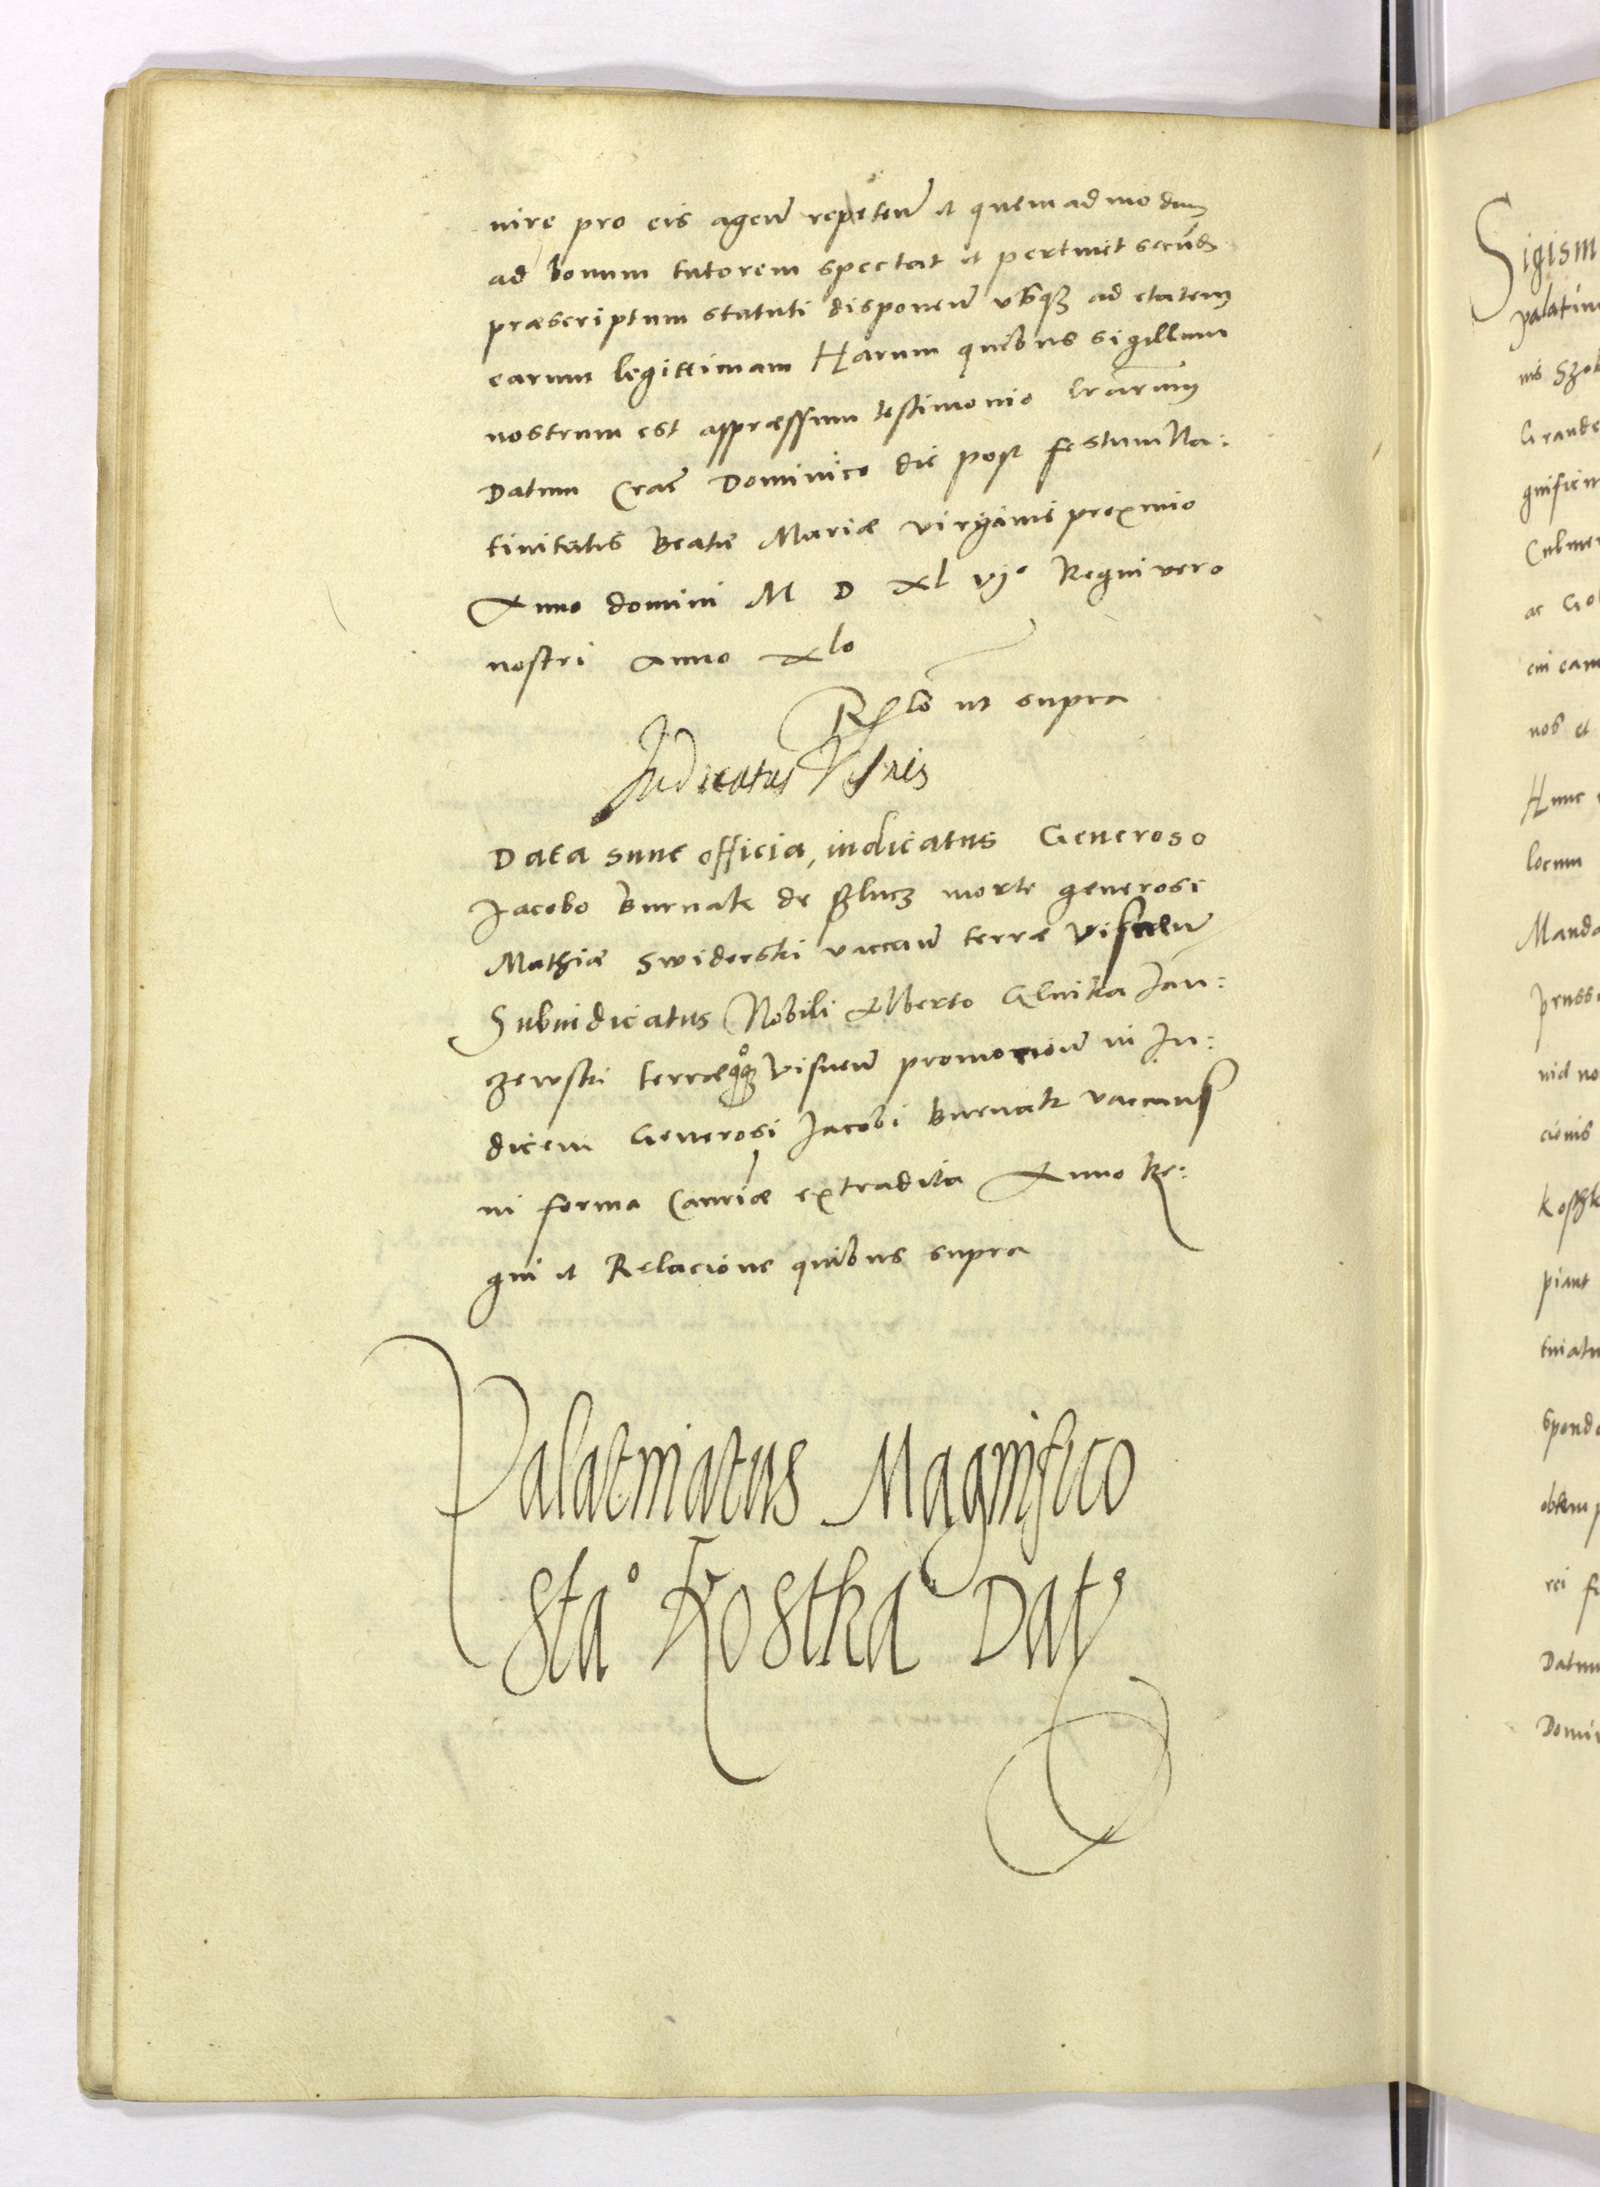 nire pro eis agen͂ repeten͂ et quemadmodum
ad bonum tutorem spectat et pertinet secund͂
præscriptum statuti disponen͂ usq3 ad etatem
earum legittimam Harum quibus sigillum
nostrum est appræssum testimonio l͂rarum
Datum Crac͂ Dominico die post festum Na:
tivitatis Beatæ Mariæ virginis proximo
Anno domini M D xl vj° Regni vero
nostri Anno xlo
R͂lo ut supra
Judicatus Visnen͂
Data sunt officia, iudicatus Generoso
Jacobo Burnak de morte generosi
Mathiæ Swiderski vaccan͂ terræ visnen͂
Subiudicatus Nobili Alberto Glinka Jan:
czewski terræ quoq3 visnen͂ promocion͂ in Ju:
dicem Generosi Jacobi Burnak vaccans
in forma Canc͂riæ extradita Anno Re:
gni et Relacione quibus supra
Palatinatus Magnifico
Sta° Kostka Dat9
Sigism
palatin
nis Szob
Grande
gnificu
Culmen
ac Gol
cui eam
nos et
Hunc
locum
Manda
prussi
nid no
cionis
koszk
piant
tuiatu
spend
obtemp
rei
Datum
Domi